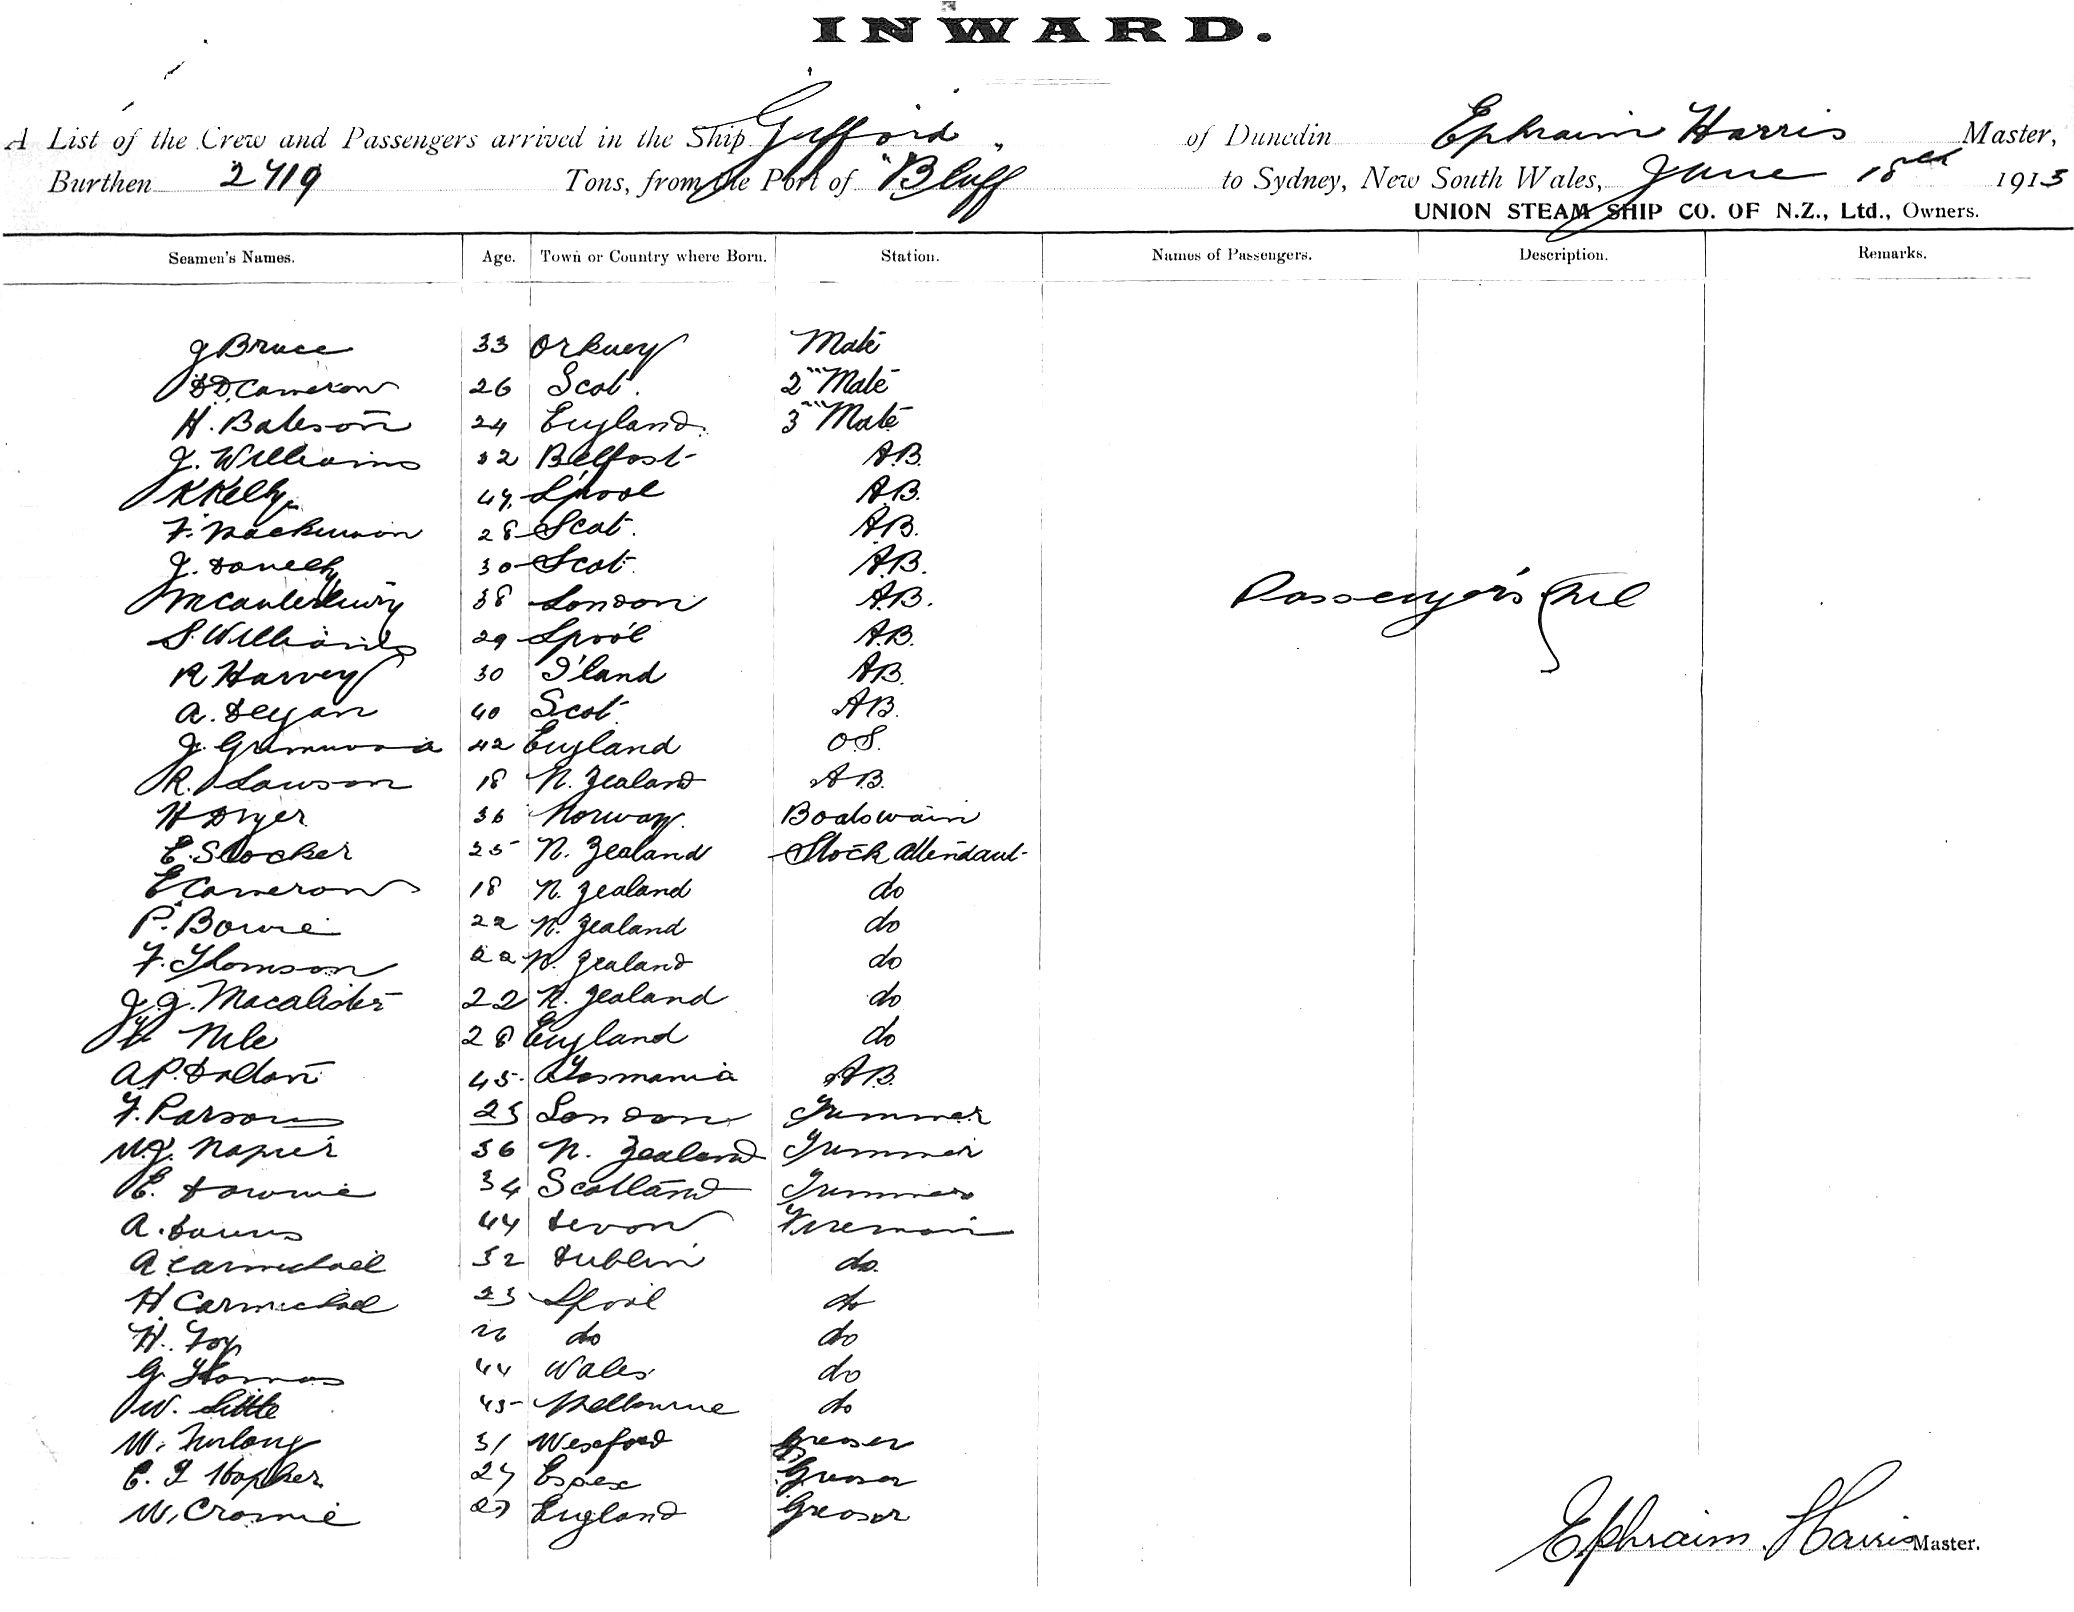 INWARD.
A List of the Crew and Passengers arrived in the Ship Gifford of Dunedin Ephraim Harris Master,
Burthen 2419 Tons, from the Port of "Bluff" to Sydney, New South Wales, June 18 1913
UNION STEAM SHIP CO. OF N.Z., Ltd., Owners.
Seamen's Names. Age. Town or Country where Born. Station. Names of Passengers. Description. Remarks.
J Bruce 33 Orkney Mate
D Cameron 26 Scot. 2nd Mate
H. Bateson 24 England 3rd Mate
J. Williams 32 Belfast A.B.
K Kelly 47 L'pool A.B.
F. Mackinnon 28 Scot. A.B.
J. Donelly 30 Scot. A.B.
M Canterbury 38 London A.B.
Passengers Nil
S. Williams 29 L'pool A.B.
R Harvey 30 I'land A.B.
A. Degan 40 Scot. A.B.
J. 42 England O.S.
R. Lawson 18 N. Zealand A.B.
H Dryer 36 Norway. Boatswain
E. Stocker 25 N. Zealand Stock Attendant
E Cameron 18 N. Zealand do
P. Bowie 22 N. Zealand do
F. Thomson 22 N. Zealand do
J. J. Macalister 22 N. Zealand do
Nile 28 England do
A.P. Dalton 45 Tasmania A.B.
F. Parsons 23 London Trimmer
W.J. Napier 36 N. Zealand Trimmer
E. Downie 34 Scotland Trimmer
A. 44 Devon Fireman
A Carmichael 32 Dublin do.
H Carmichael 23 L'pool do
H. Fox 26 do do
G. Thomas 44 Wales do
W. Little 45 Melbourne do
W. Furlong 31 Wexford Greaser
E. J Hopker 27 Essex Greaser
W. Cromie 27 England Greaser
Ephraim Harris Master.